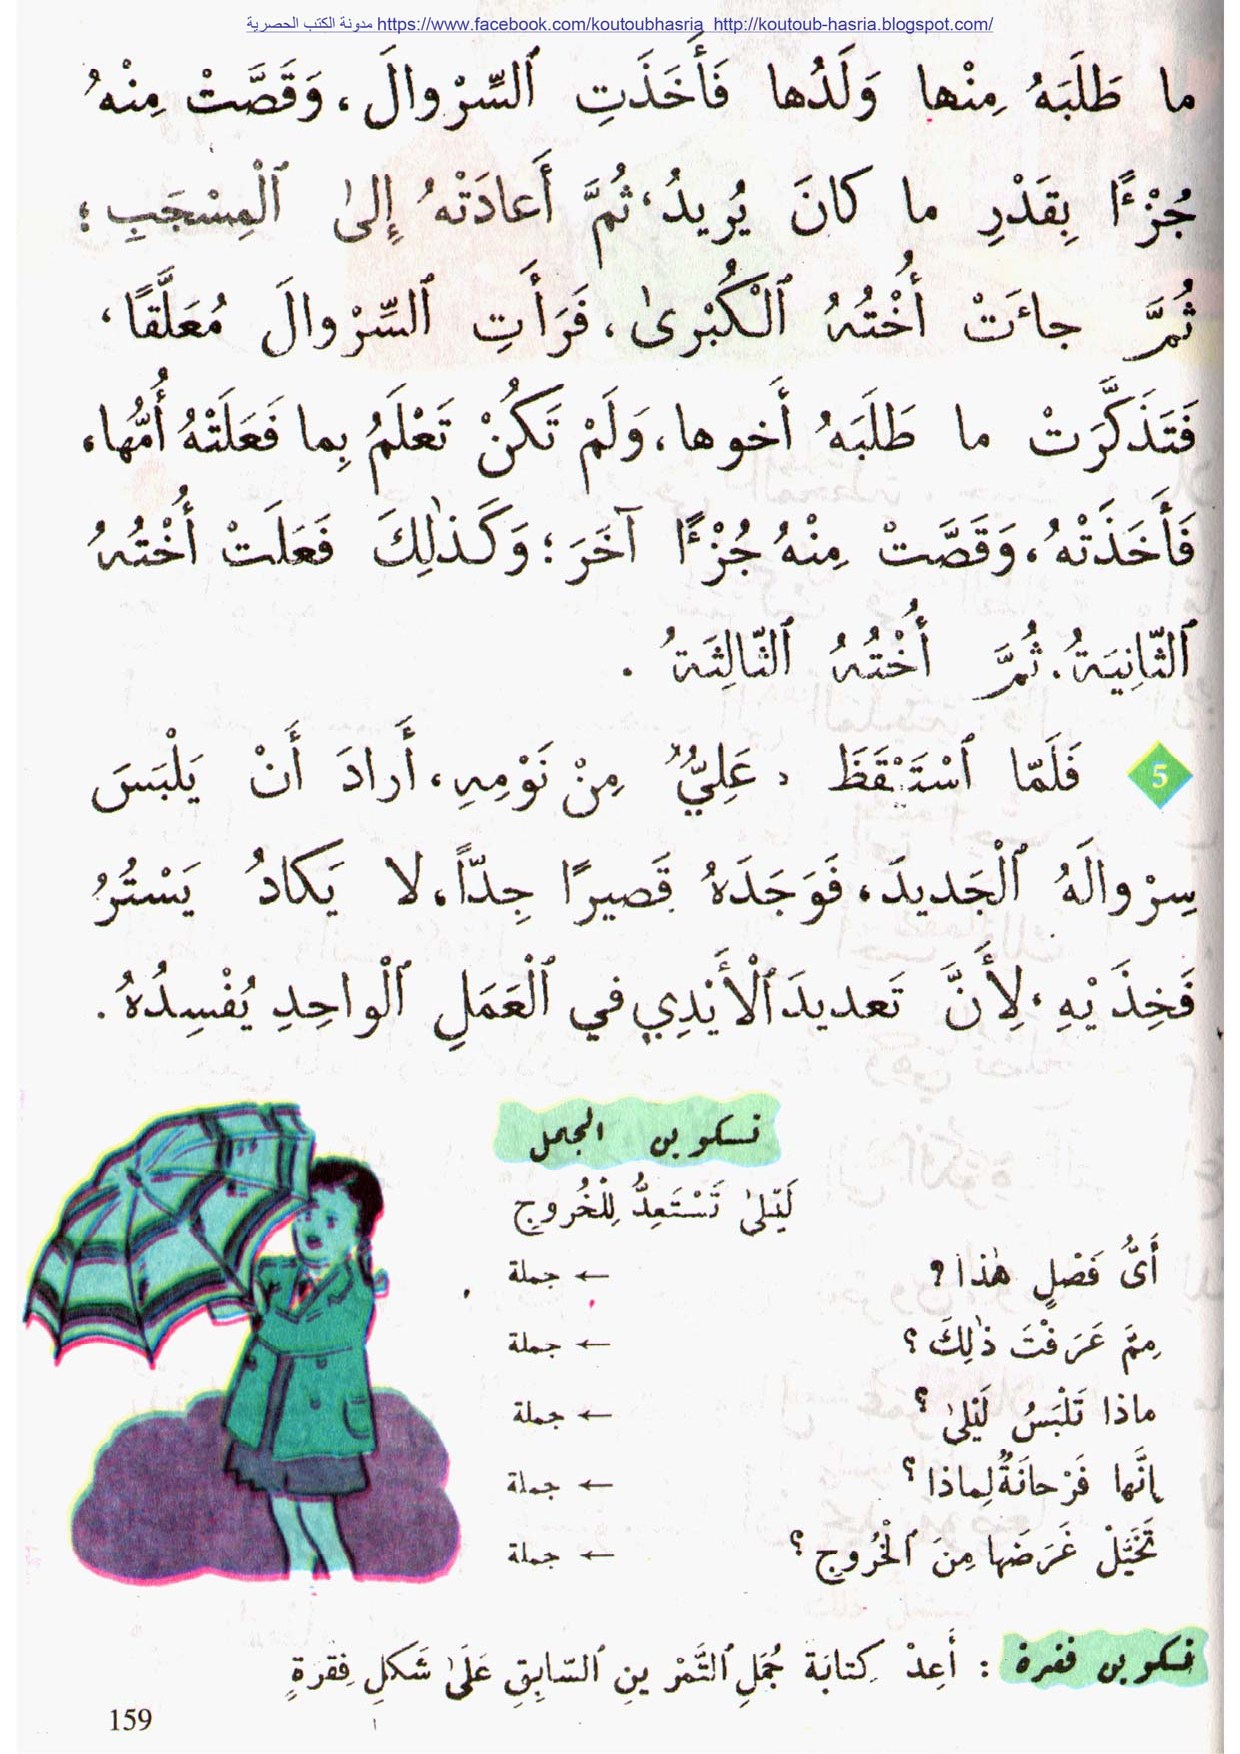 مدونة الكتب الحصرية https://www.facebook.com/koutoubhasria http://koutoub-hasria.blogspot.com/
ما طَلَبَهُ مِنْها وَلَدُها فَأَخَذَتِ ٱلسِّرْوالَ، وَقَصَّتْ مِنْهُ
جُزْءًا بِقَدْرِ ما كانَ يُريدُ، ثُمَّ أَعادَتْهُ إِلىٰ ٱلْمِسْجَبِ؛
ثُمَّ جاءَتْ أُخْتُهُ ٱلْكُبْرىٰ، فَرَأَتِ ٱلسِّرْوالَ مُعَلَّقًا،
فَتَذَكَّرَتْ ما طَلَبَهُ أَخوها، وَلَمْ تَكُنْ تَعْلَمُ بِما فَعَلَتْهُ أُمُّها،
فَأَخَذَتْهُ، وَقَصَّتْ مِنْهُ جُزْءًا آخَرَ؛ وَكَذٰلِكَ فَعَلَتْ أُخْتُهُ
ٱلثّانِيَةُ. ثُمَّ أُخْتُهُ ٱلثّالِثَةُ .
5 فَلَمّا ٱسْتَيْقَظَ عَلِيٌّ مِنْ نَوْمِهِ، أَرادَ أَنْ يَلْبَسَ
سِرْوالَهُ ٱلْجَديدَ، فَوَجَدَهُ قَصيرًا جِدّاً، لا يَكادُ يَسْتُرُ
فَخِذَيْهِ، لِأَنَّ تَعديدَ ٱلْأَيْدِي في ٱلْعَمَلِ ٱلْواحِدِ يُفْسِدُهُ.
تكوين الجمل
لَيْلىٰ تَسْتَعِدُّ لِلْخُروجِ
أَىُّ فَصْلٍ هٰذا؟ ← جملة
مِمَّ عَرَفْتَ ذٰلِكَ؟ ← جملة
ماذا تَلْبَسُ لَيْلىٰ؟ ← جملة
إِنَّها فَرْحانَةٌ لِماذا؟ ← جملة
تَخَيَّلْ غَرَضَها مِنَ ٱلْخُروجِ؟ ← جملة
تكوين فقرة : أَعِدْ كِتابَةَ جُمَلِ ٱلتَّمْرينِ ٱلسّابِقِ عَلَىٰ شَكلِ فِقرَةٍ
159